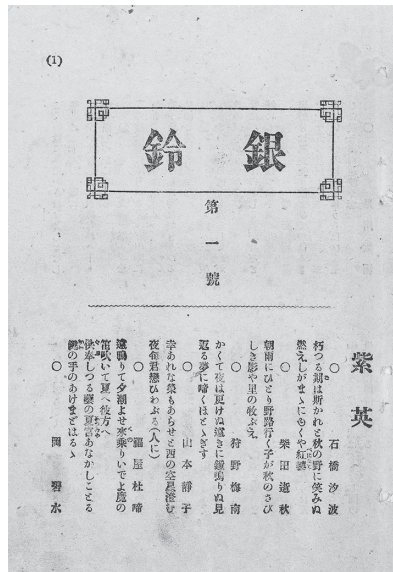 (1)
銀鈴
第一號
紫英
○ 石橋汐波
朽つる期は斯かれと秋の野に笑みぬ
燃えしがまゝに
○ 柴田逝秋
朝雨にひとり野路行く子が秋のさび
しき影や里の牧ぶえ
○ 狩野梅南
かくて夜は更けぬ遠きに鐘鳴りぬ見
る夢に啼くほとゝぎす
○ 山本靜子
幸あれな榮もあらせと西の空星澄む
夜を君戀ひわぶる(人に)
○ 羅屋杜啼
遠鳴りて夕潮よせ來乘りいでよ魔の
笛吹いて夏へ彼方へ
供奉しつる の夏宮あなかしことる
の手のあけまどはるゝ
○ 關碧水